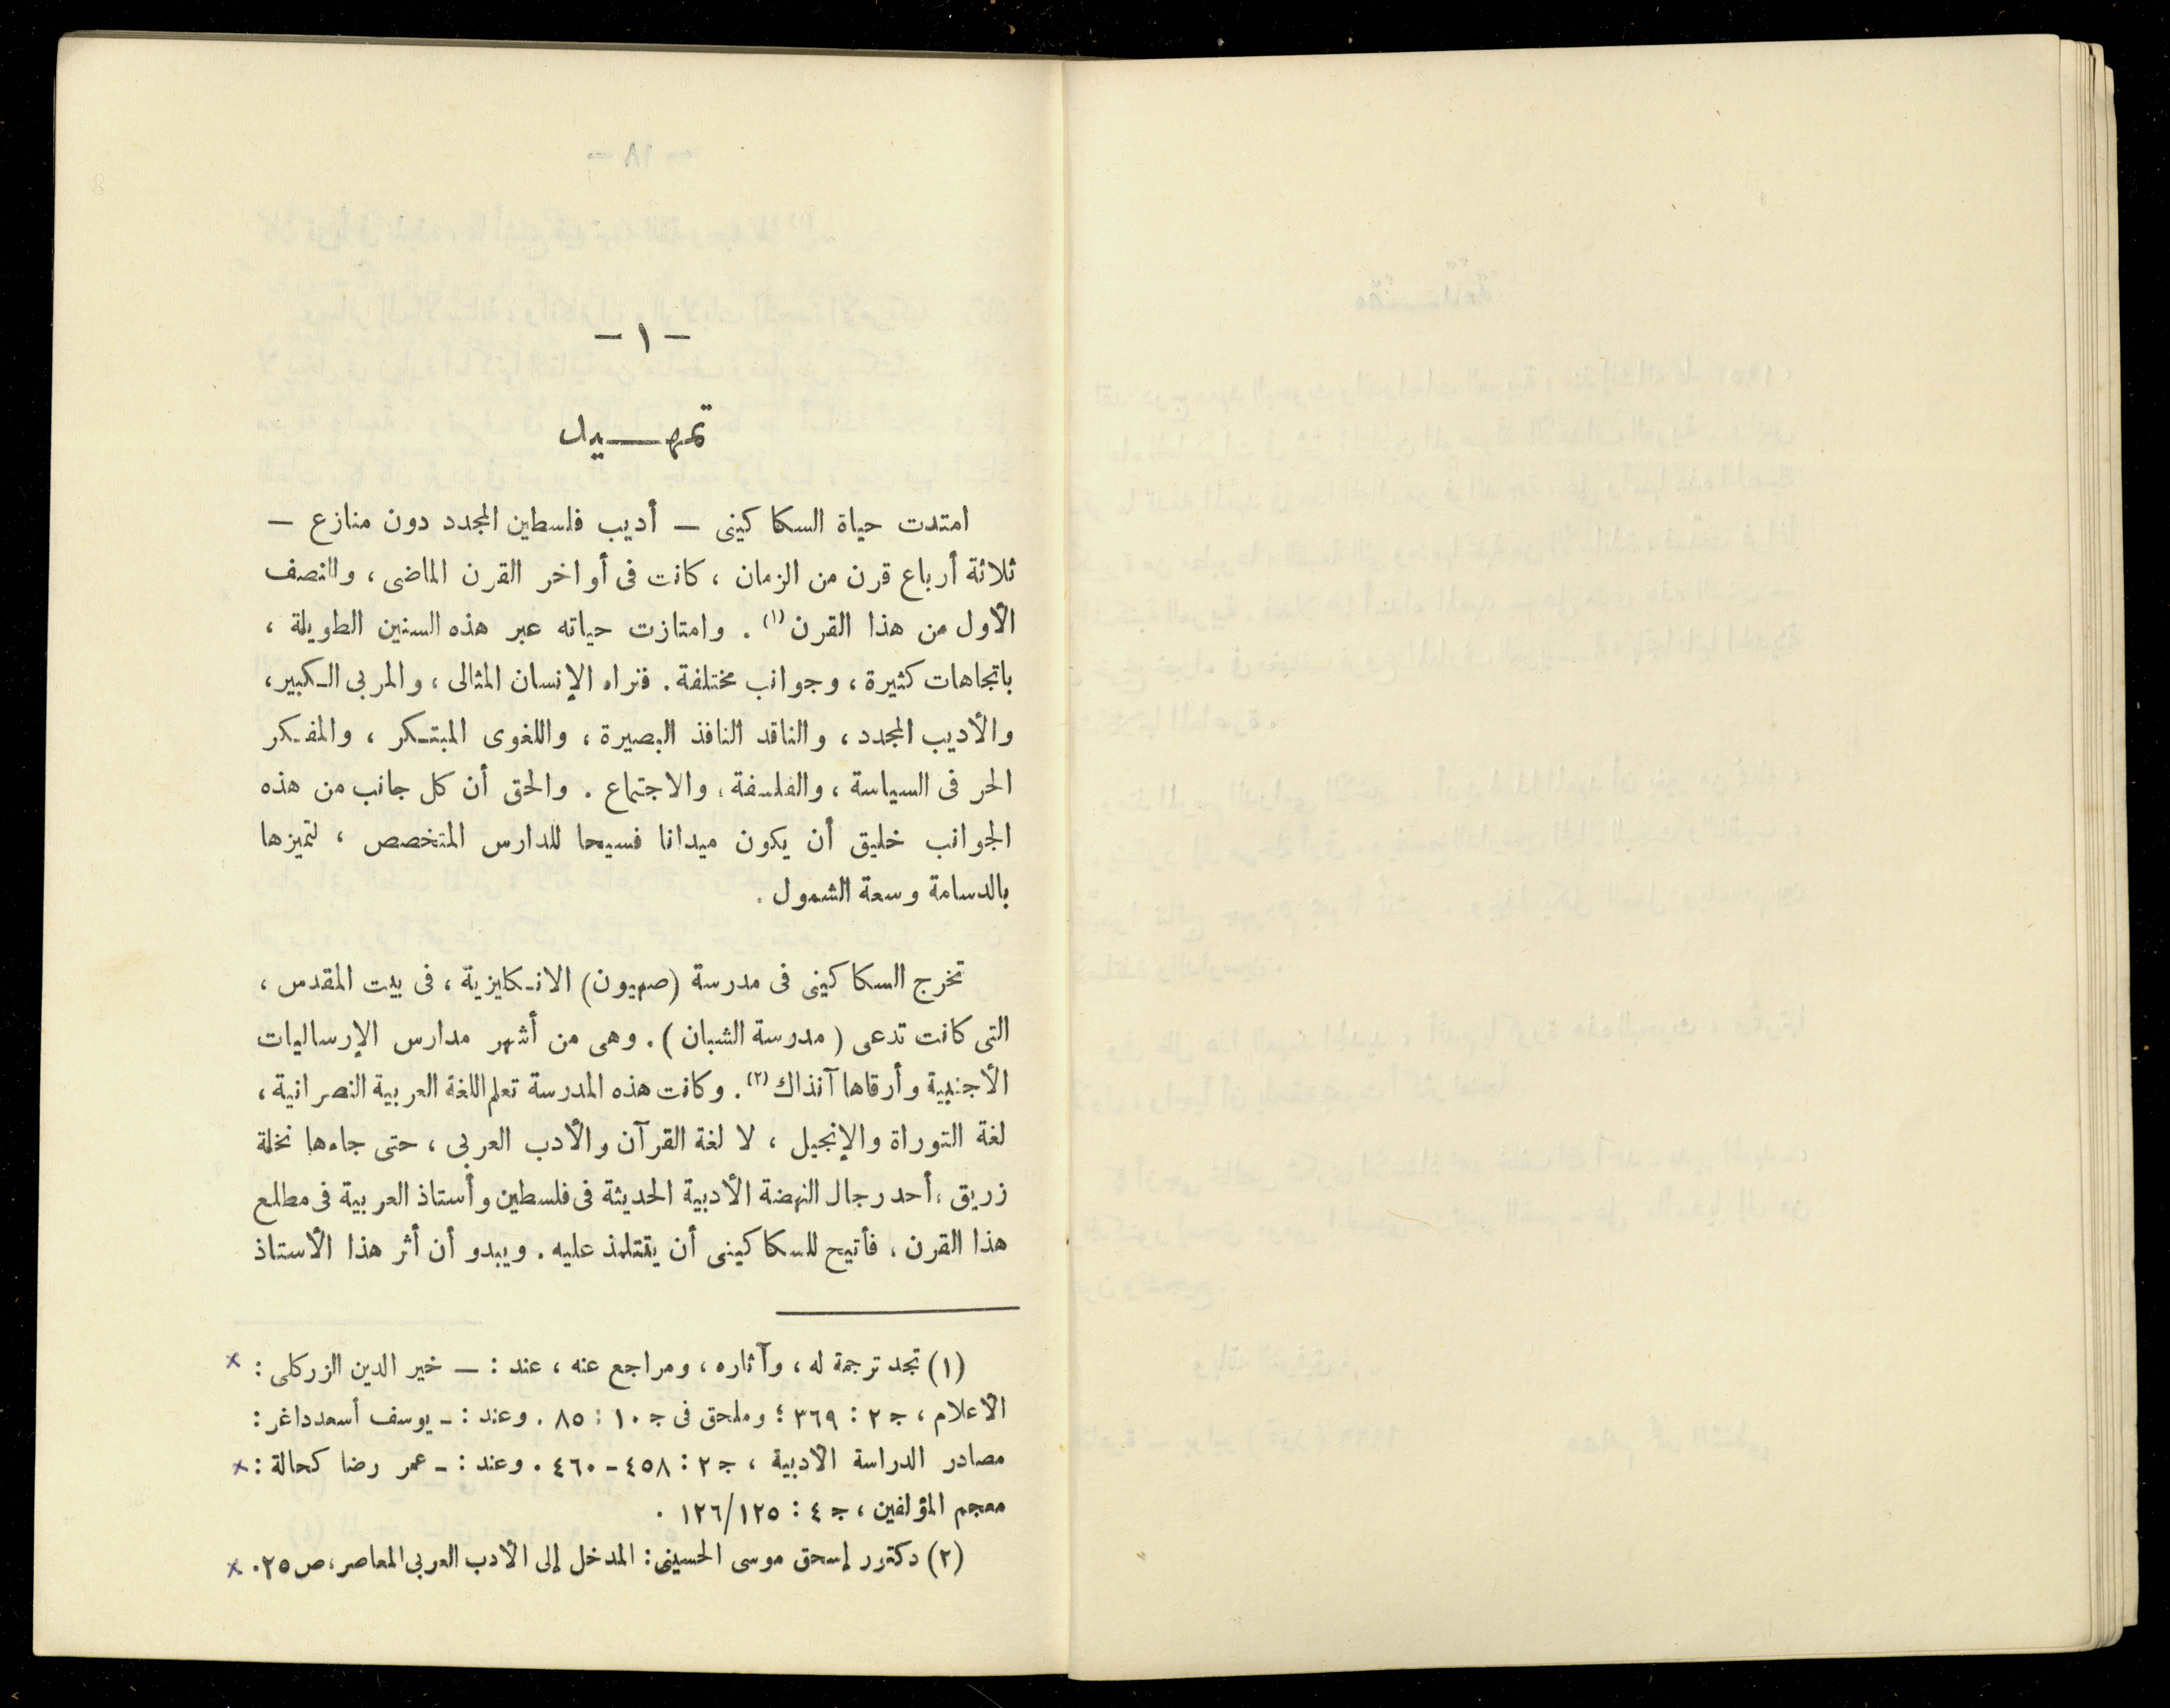 — ١ —
تمهـــيد
امتدت حياة السكاكينى — أديب فلسطين المجدد دون منازع —
ثلاثة أرباع قرن من الزمان ، كانت فى أواخر القرن الماضى ، والنصف
الأول من هذا القرن (١) . وامتازت حياته عبر هذه السنين الطويلة ،
باتجاهات كثيرة ، وجوانب مختلفة . فنراه الإنسان المثالى ، والمربى الكبير ،
والأديب المجدد ، والناقد النافذ البصيرة ، واللغوى المبتكر ، والمفكر
الحر فى السياسة ، والفلسفة ، والاجتماع . والحق أن كل جانب من هذه
الجوانب خليق أن يكون ميدانا فسيحا للدارس المتخصص ، لتميزها
بالدسامة وسعة الشمول .
تخرج السكاكينى فى مدرسة (صهيون) الانكليزية ، فى بيت المقدس ،
التى كانت تدعى ( مدرسة الشبان ) . وهى من أشهر مدارس الإرساليات
الأجنبية وأرقاها آنذاك (٢) . وكانت هذه المدرسة تعلم اللغة العربية النصرانية ،
لغة التوراة والإنجيل ، لا لغة القرآن والأدب العربى ، حتى جاءها نخلة
زريق ، أحد رجال النهضة الأدبية الحديثة فى فلسطين وأستاذ العربية فى مطلع
هذا القرن ، فأتيح للسكاكينى أن يتتلمذ عليه . ويبدو أن أثر هذا الأستاذ
(١) تجد ترجمة له ، وآثاره ، ومراجع عنه ، عند : — خير الدين الزركلى : ×
الأعلام ، ج ٢ : ٣٦٩ ؛ وملحق فى ج ١٠ : ٨٥ . وعند : - يوسف أسعد داغر :
مصادر الدراسة الأدبية ، ج ٢ : ٤٥٨ - ٤٦٠ . وعند : - عمر رضا كحالة : ×
معجم المؤلفين ، ج ٤ : ١٢٥/١٢٦ .
(٢) دكتور إسحق موسى الحسينى : المدخل إلى الأدب العربى المعاصر ، ص ٢٥ . ×